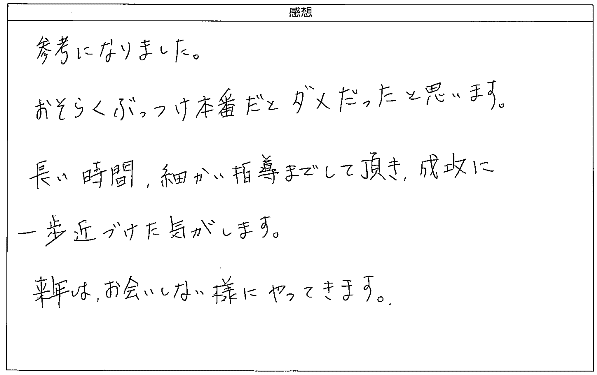 感想
参考になりました。
おそらくぶっつけ本番だとダメだったと思います。
長い時間,細かい指導までして頂き,成収に
一歩近づけた気がします。
来年は,お会いしない様にやってきます。